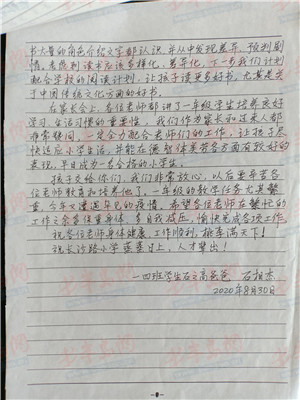 书大量的角色介绍文字都认识,并从中发现差异、预判剧
情。考虑到读书应该多样化、差异化,下一步我们计划
配合学校的阅读计划,让孩子读更多好书,尤其是关
于中国传统文化方面的好书。
在家长会上,各位老师都讲了一年级学生培养良好
学习、生活习惯的重要性,我们作为家长和过来人都
非常赞同,一定全力配合老师们的工作,让孩子尽
快适应小学生活,并能在德智体美劳各方面有较好的
表现,早日成为一名合格的小学生。
孩子交给你们,我们非常放心,以后要辛苦各
位老师教育和培养他了。一年级的教学任务尤其繁
重,今年又遭遇罕见的疫情,希望各位老师在繁忙的
工作之余多保重身体,多自我减压,愉快完成各项工作。
祝各位老师身体健康,工作顺利,桃李满天下!
祝长沙路小学蒸蒸日上,人才辈出!
一四班学生石高爸爸 石相杰
2020年8月30日